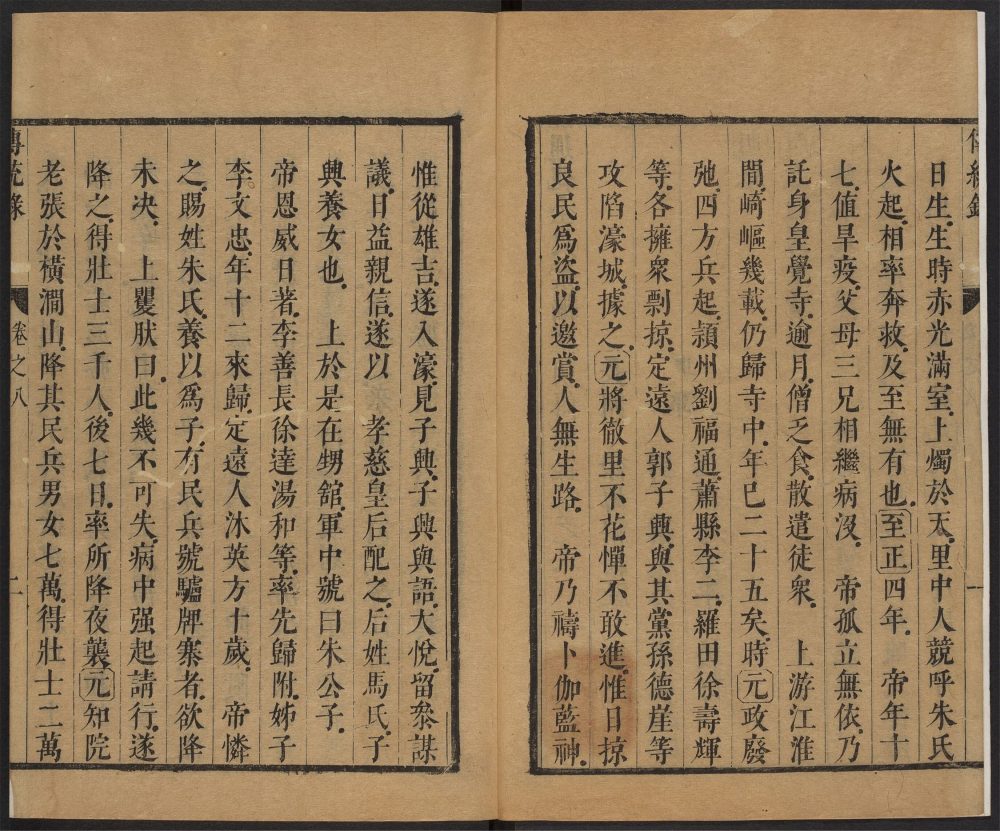 日生生時赤光滿室上燭於天里中人競呼朱氏
火起相率奔救及至無有也至正四年　帝年十
七值旱疫父母三兄相繼病沒　帝孤立無依乃
託身皇覺寺逾月僧乏食散遣徒衆　上游江淮
間崎嶇幾載仍歸寺中年已二十五矣時元政廢
弛四方兵起潁州劉福通蕭縣李二羅田徐壽輝
等各擁衆剽掠定遠人郭子興與其黨孫德崖等
攻陷濠城據之元將徹里不花憚不敢進惟日掠
良民爲盜以邀賞人無生路　帝乃禱卜伽藍神
惟從雄吉遂入濠見子興子興與語大悅留叅謀
議日益親信遂以　孝慈皇后配之后姓馬氏子
興養女也　上於是在甥舘軍中號曰朱公子
帝恩威日著李善長徐達湯和等率先歸附姊子
李文忠年十二來歸定遠人沐英方十歲　帝憐
之賜姓朱氏養以爲子有民兵號驢牌寨者欲降
未决　上瞿肰曰此幾不可失病中强起請行遂
降之得壯士三千人後七日率所降夜襲元知院
老張於橫澗山降其民兵男女七萬得壯士二萬
傳統錄
卷之八
二